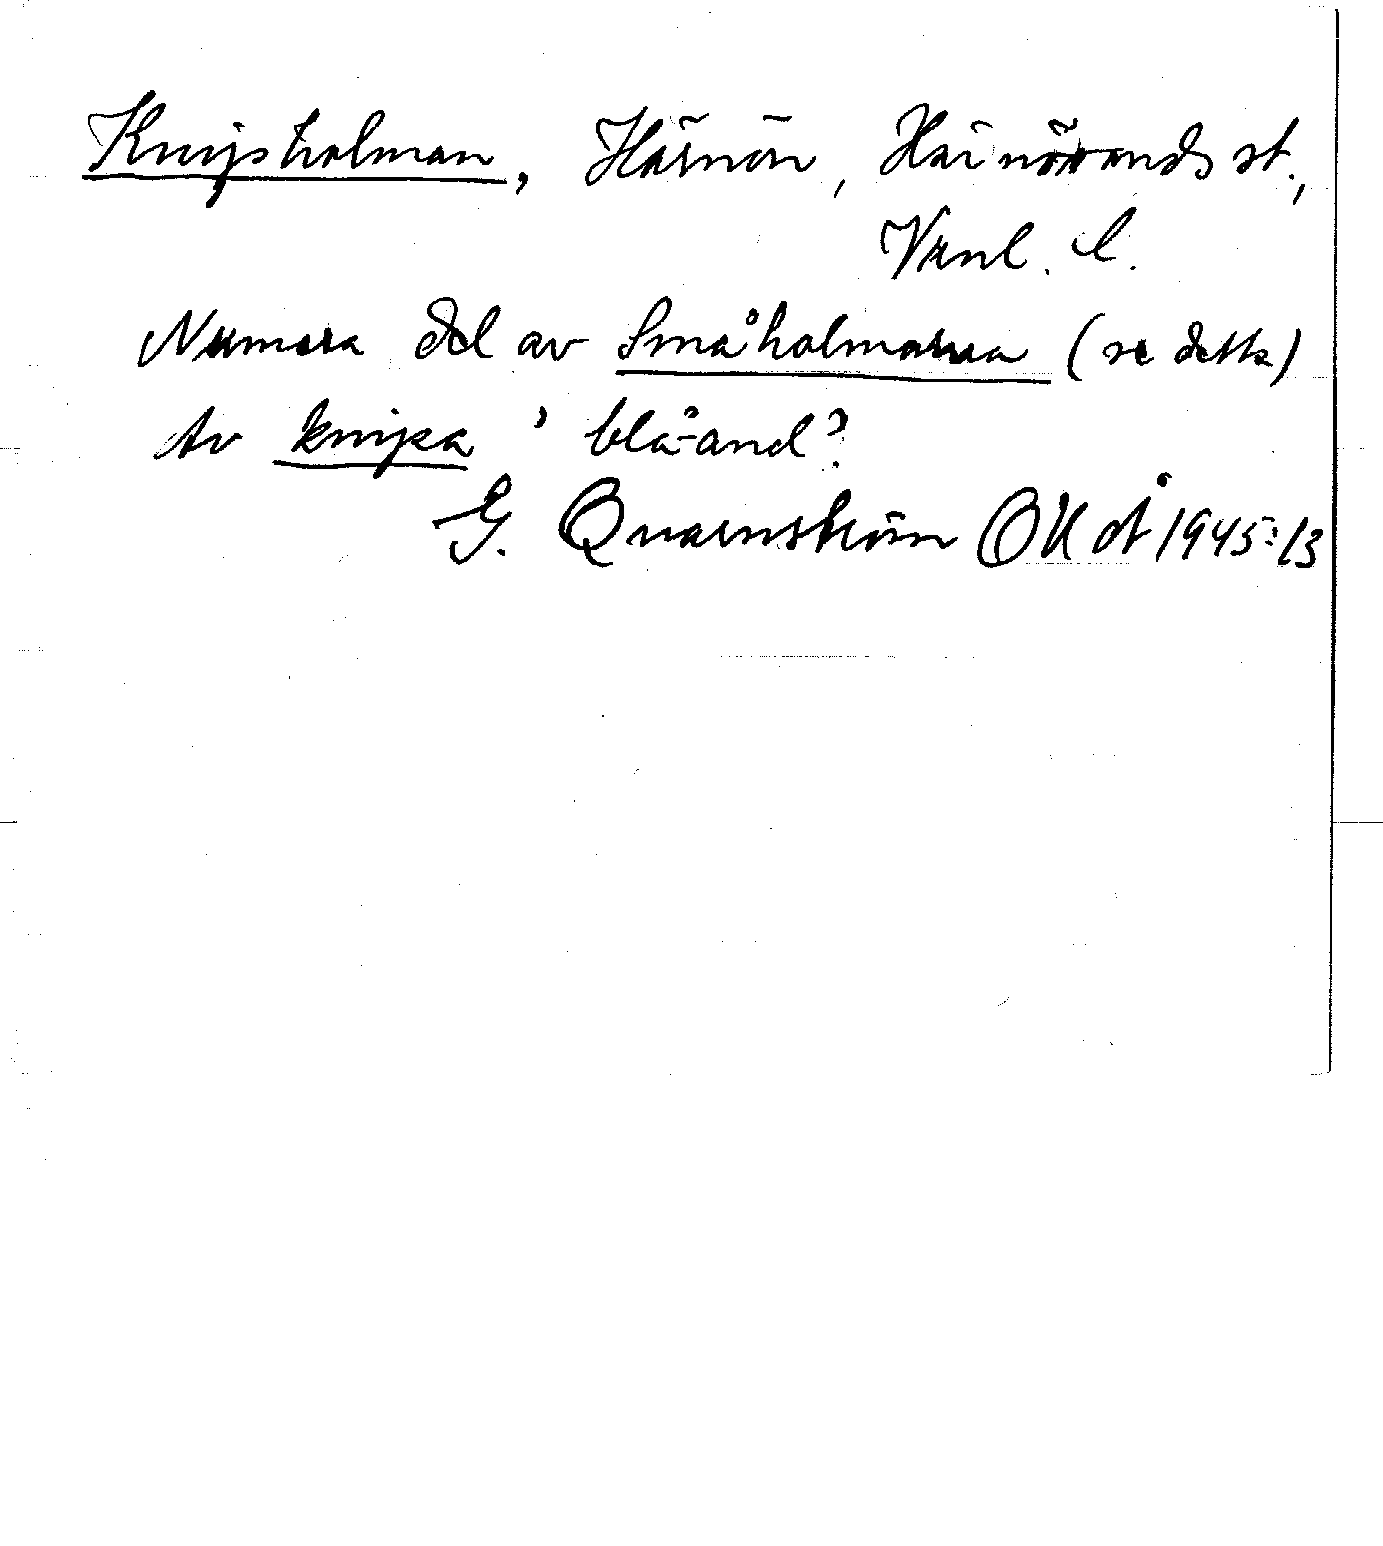 Knipsholman, Härnön, Härnösands st.,
Vnl. l.
Numera del av Småholmarna (se detta)
Av knipa ' blå-and'?
G. Quarnström OUÅ 1945:13